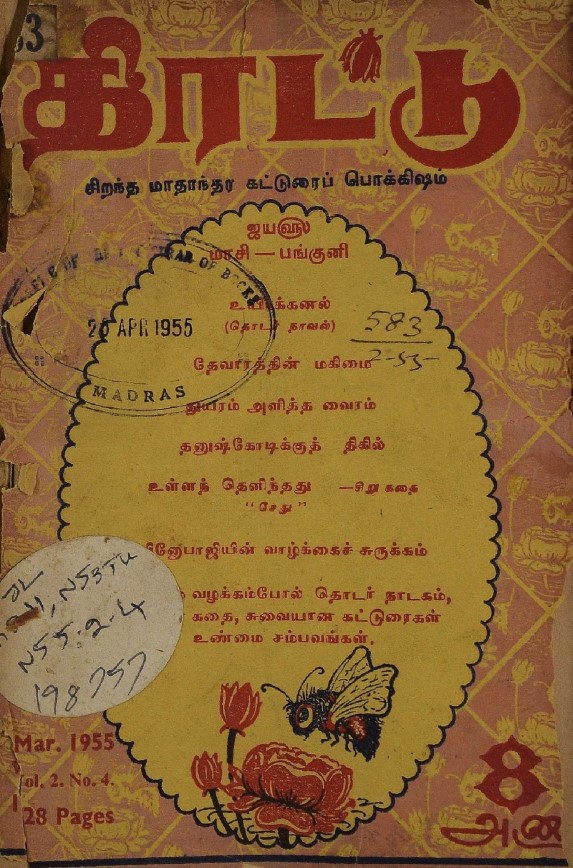 திரட்டு
சிறந்த மாதாந்தர கட்டுரைப் பொக்கிஷம்
ஜயவு
மாசி — பங்குனி
(தொடர் நாவல்)
583
2-55
தேவாரத்தின் மகிமை
துயரம் அளித்த வைரம்
தனுஷ்கோடிக்குத் திகில்
உள்ளந் தெளிந்தது —சிறு கதை
"சேது"
வினோபாஜியின் வாழ்க்கைச் சுருக்கம்
வழக்கம்போல் தொடர் நாடகம்,
கதை, சுவையான கட்டுரைகள்
உண்மை சம்பவங்கள்.
APR 1955
MADRAS
N55.2.4
198757
Mar. 1955
Vol. 2. No. 4.
128 Pages
8
அணா